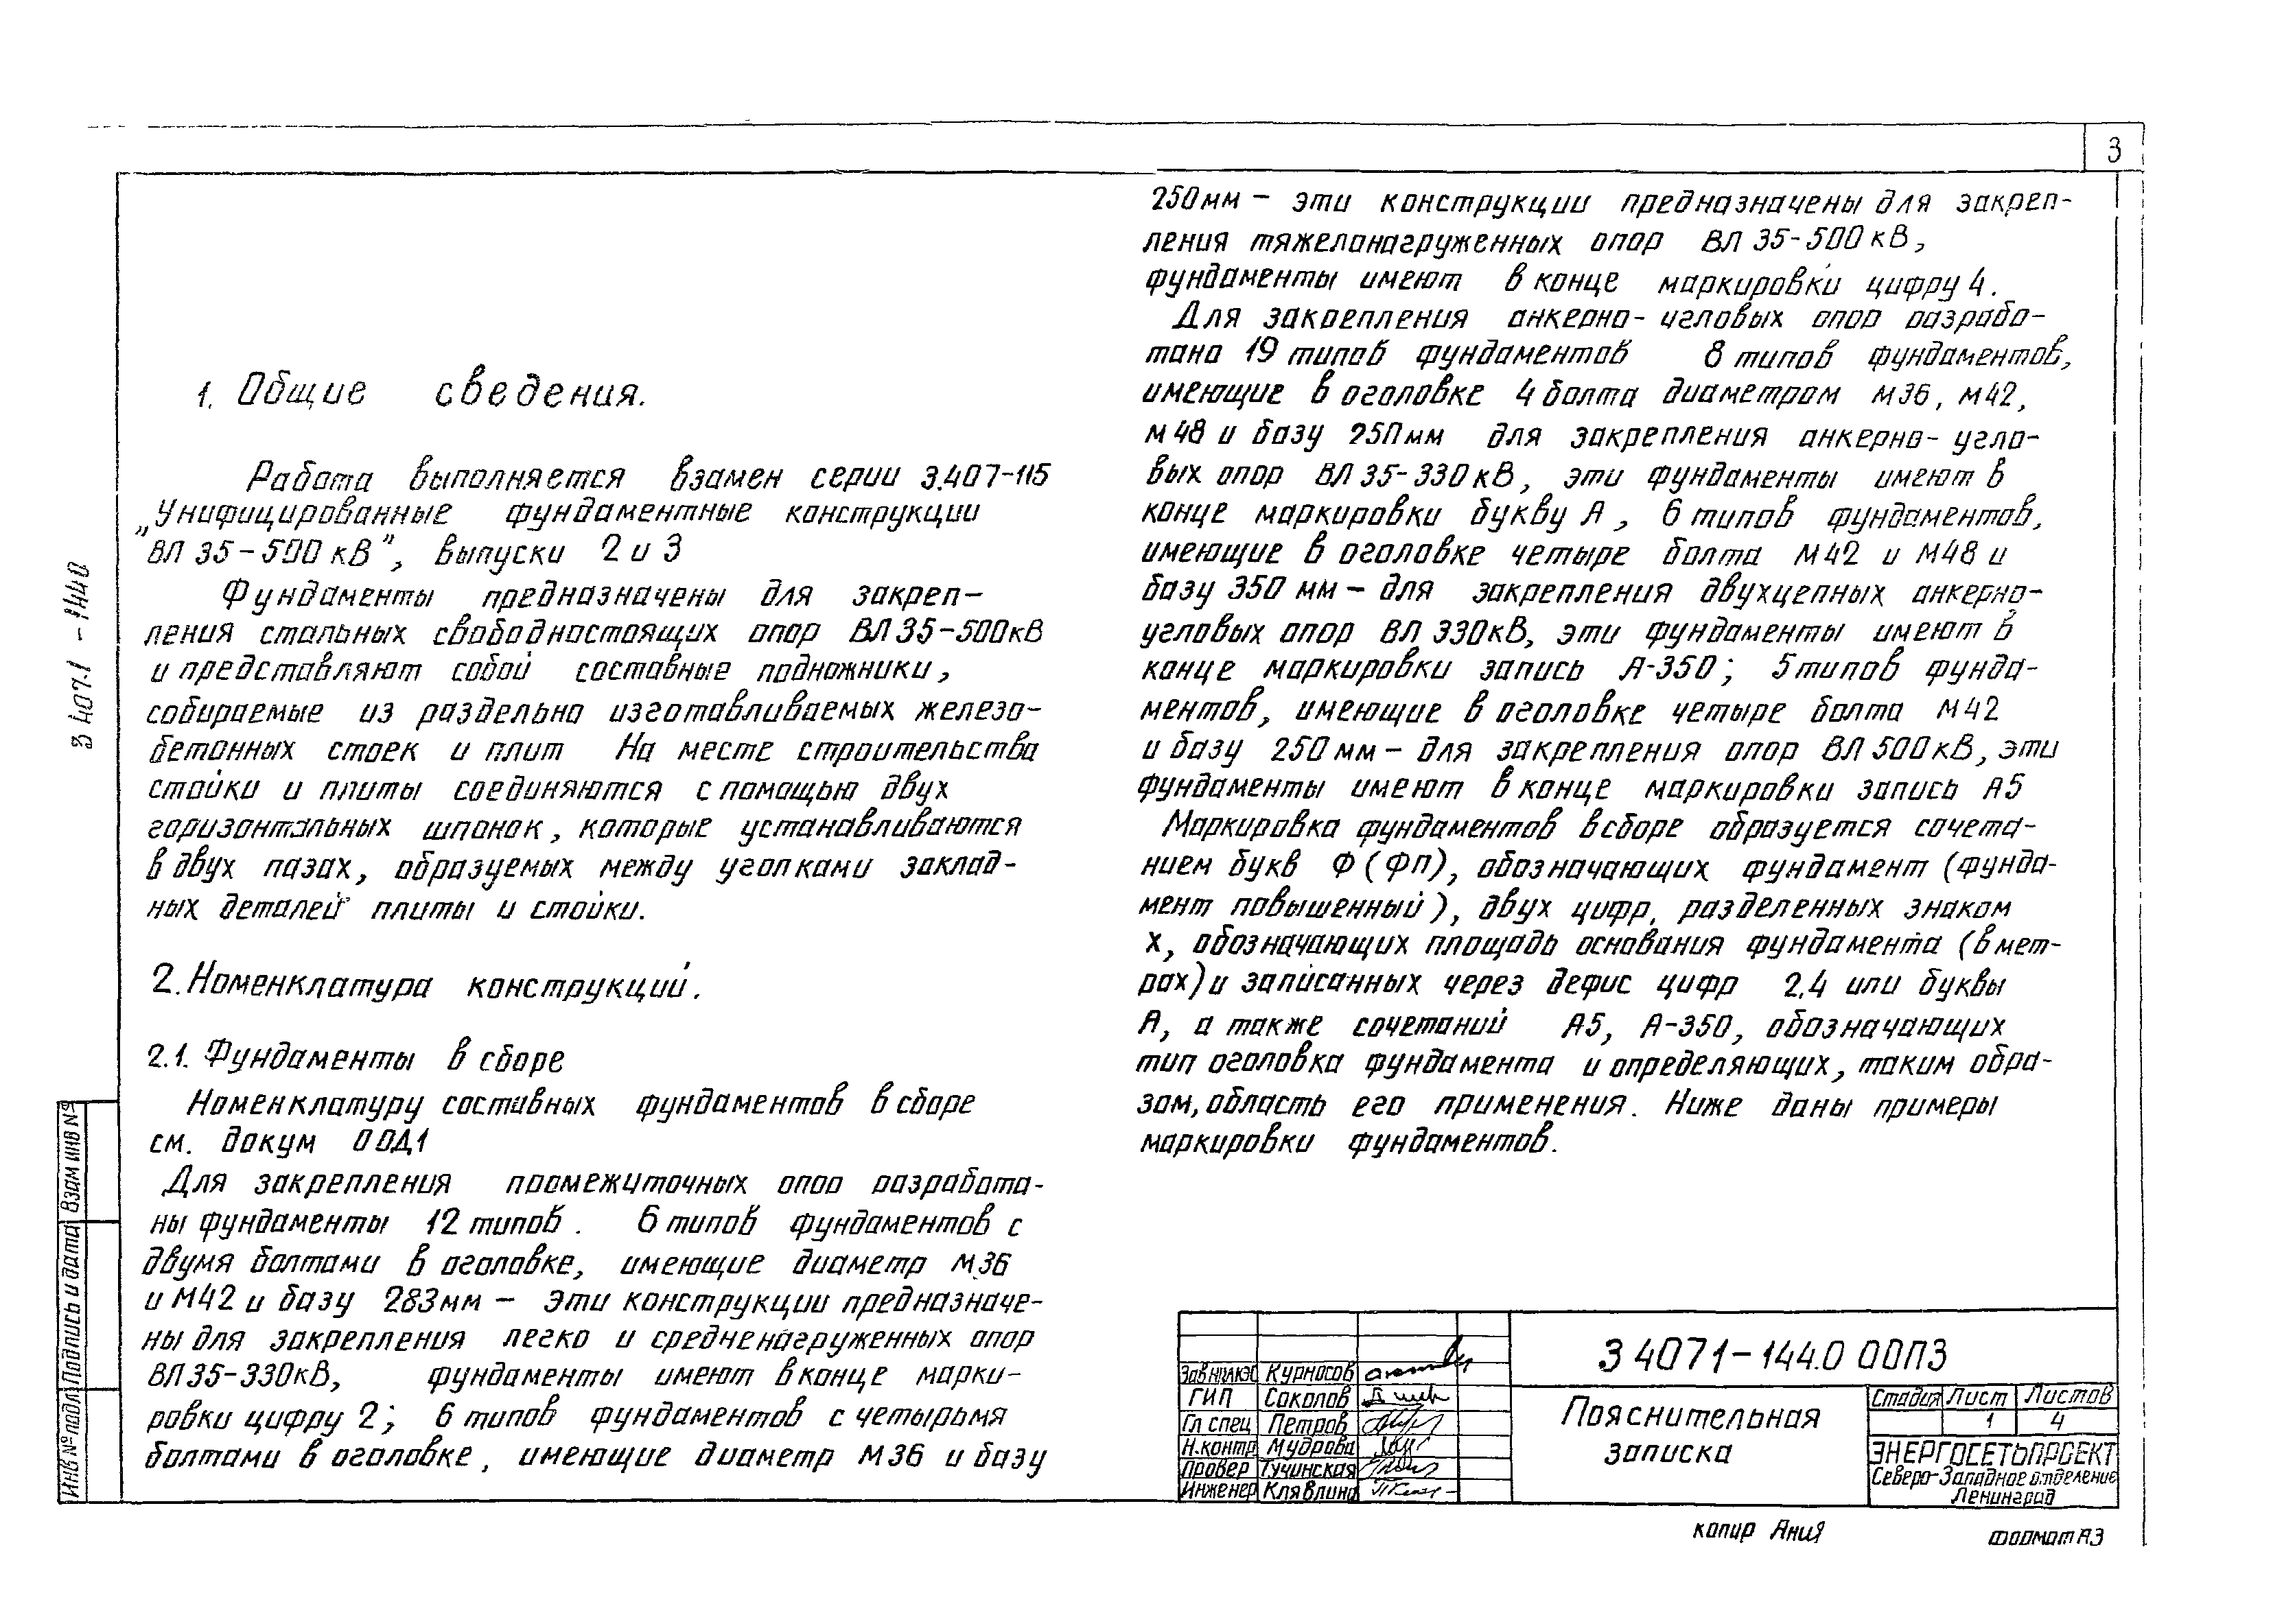 3
1. Общие сведения.
Работа выполняется взамен серии 3.407-115
„Унифицированные фундаментные конструкции
ВЛ 35-500 кВ", выпуски 2 и 3
Фундаменты предназначены для закреп-
ления стальных свободностоящих опор ВЛ 35-500кВ
и представляют собой составные подножники,
собираемые из раздельно изготавливаемых железо-
бетонных стоек и плит На месте строительства
стойки и плиты соединяются с помощью двух
горизонтальных шпонок, которые устанавливаются
в двух пазах, образуемых между уголками заклад-
ных деталей плиты и стойки.
2. Номенклатура конструкций.
2.1. Фундаменты в сборе
Номенклатуру составных фундаментов в сборе
см. докум 00Д1
Для закрепления промежуточных опор разработа-
ны фундаменты 12 типов. 6 типов фундаментов с
двумя болтами в оголовке, имеющие диаметр М36
и М42 и базу 283мм - эти конструкции предназначе-
ны для закрепления легко и средненагруженных опор
ВЛ35-330кВ, фундаменты имеют в конце марки-
ровки цифру 2; 6 типов фундаментов с четырьмя
болтами в оголовке, имеющие диаметр М36 и базу
250мм - эти конструкции предназначены для закреп-
ления тяжелонагруженных опор ВЛ 35-500кВ,
фундаменты имеют в конце маркировки цифру 4.
Для закрепления анкерно-угловых опор разрабо-
тано 19 типов фундаментов 8 типов фундаментов,
имеющие в оголовке 4 болта диаметром М36, М42,
М48 и базу 250мм для закрепления анкерно-угло-
вых опор ВЛ 35-330кВ, эти фундаменты имеют в
конце маркировки букву А, 6 типов фундаментов,
имеющие в оголовке четыре болта М42 и М48 и
базу 350 мм - для закрепления двухцепных анкерно-
угловых опор ВЛ 330кВ, эти фундаменты имеют в
конце маркировки запись А-350; 5 типов фунда-
ментов, имеющие в оголовке четыре болта М42
и базу 250мм - для закрепления опор ВЛ 500кВ, эти
фундаменты имеют в конце маркировки запись А5
Маркировка фундаментов в сборе образуется сочета-
нием букв Ф (ФП), обозначающих фундамент (фунда-
мент повышенный), двух цифр, разделенных знаком
х, обозначающих площадь основания фундамента (в мет-
рах) и записанных через дефис цифр 2,4 или буквы
А, а также сочетаний А5, А-350, обозначающих
тип оголовка фундамента и определяющих, таким обра-
зом, область его применения. Ниже даны примеры
маркировки фундаментов.
3 407.1 - 144.0
Взам инв №
Подпись и дата
Инв № подл
Курносов
ГИП Соколов
Гл спец Петров
Н.контр Мудрова
Провер Тучинская
Инженер Клявлина
3 407.1-144.0 00ПЗ
Пояснительная
записка
Стадия Лист Листов
1 4
ЭНЕРГОСЕТЬПРОЕКТ
Северо-Западное отделение
Ленинград
копир Ания
формат А3